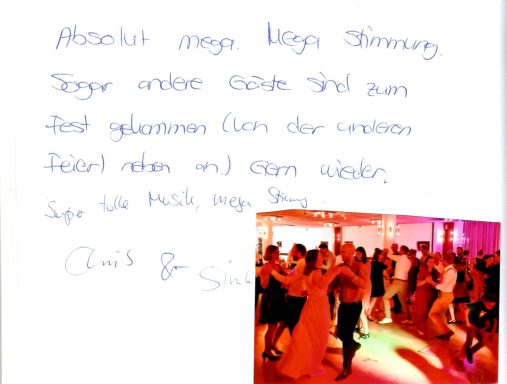 Absolut mega. Mega Stimmung.
Sogar andere Gäste sind zum
Fest gekommen (Von der anderen
Feier) neben an.) Gern wieder.
Super tolle Musik, mega Stimmung
Chris &